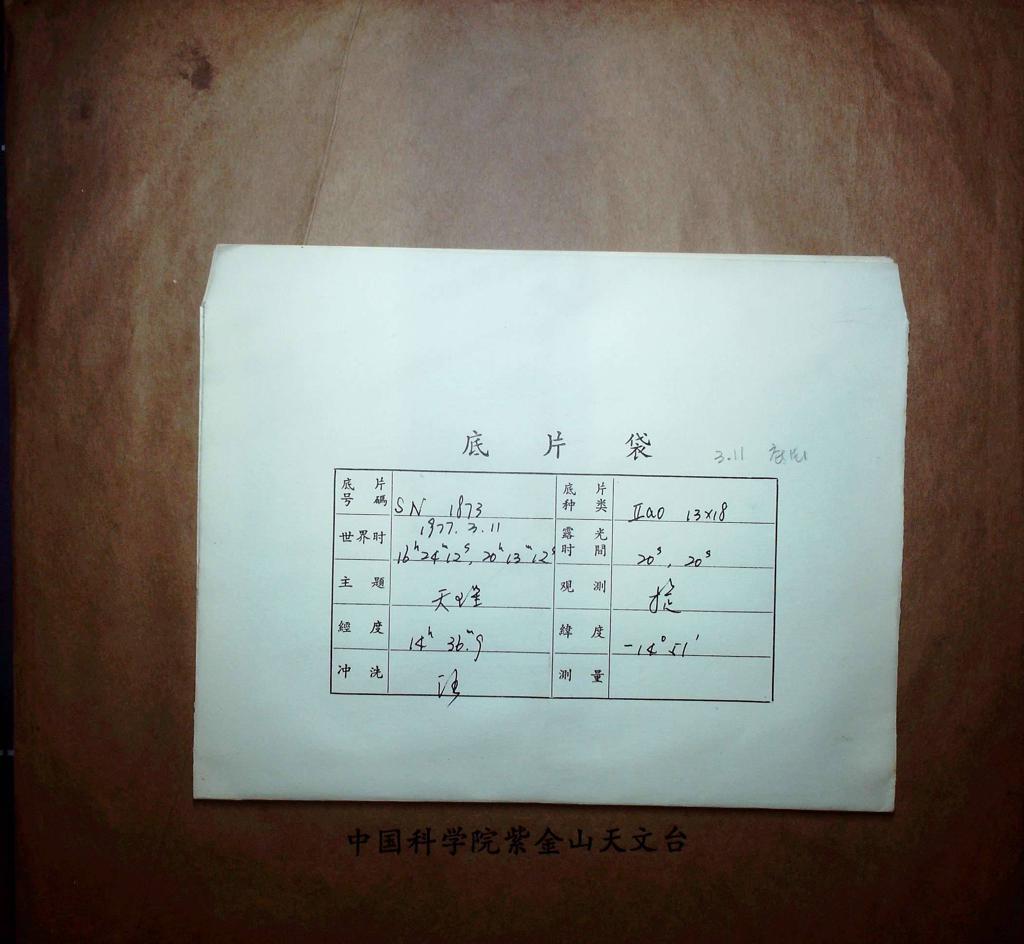 底 片 袋 3.11
底片号碼 SN 1873 底片种类 IIaO 13×18
世界时 1977.3.11 16ʰ24ᵐ12ˢ, 20ʰ13ᵐ12ˢ 露光时間 20ˢ, 20ˢ
主題 天王星 观測
經度 14ʰ 36ᵐ.9 緯度 -14°51′
冲洗 測量
中国科学院紫金山天文台